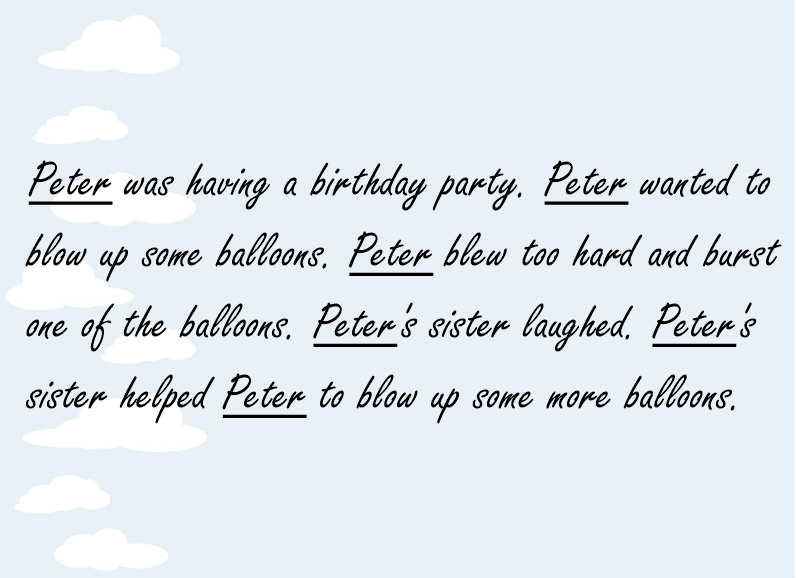 Peter was having a birthday party. Peter wanted to
blow up some balloons. Peter blew too hard and burst
one of the balloons. Peter's sister laughed. Peter's
sister helped Peter to blow up some more balloons.